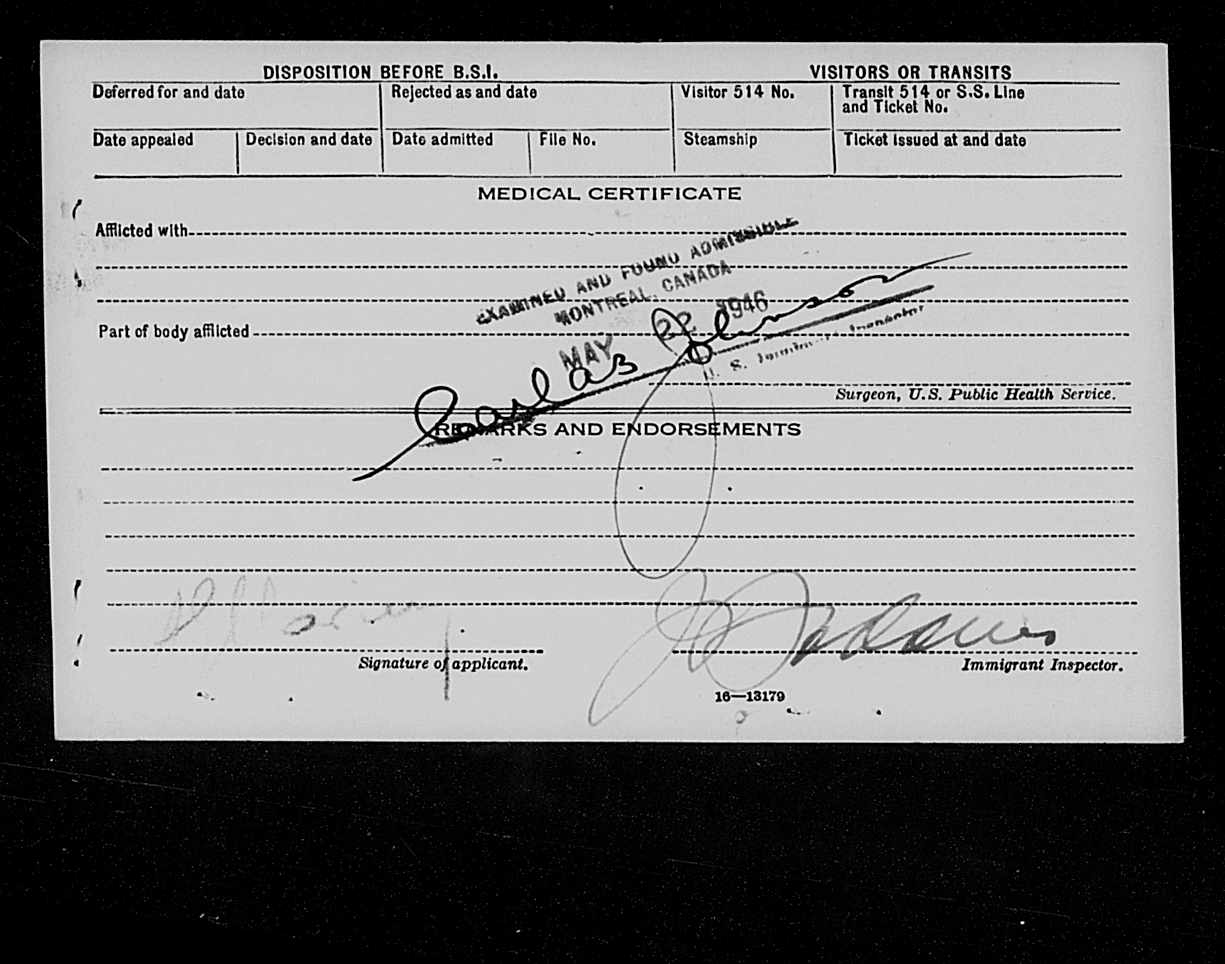 DISPOSITION BEFORE B.S.I. VISITORS OR TRANSITS
Deferred for and date Rejected as and date Visitor 514 No. Transit 514 or S.S. Line
and Ticket No.
Date appealed Decision and date Date admitted File No. Steamship Ticket issued at and date
MEDICAL CERTIFICATE
Afflicted with
EXAMINED AND FOUND ADMISSIBLE
MONTREAL, CANADA
Part of body afflicted
MAY 22 1946
Johnson
U. S. Immigrant Inspector
Surgeon, U.S. Public Health Service.
REMARKS AND ENDORSEMENTS
Signature of applicant. Immigrant Inspector.
16—13179